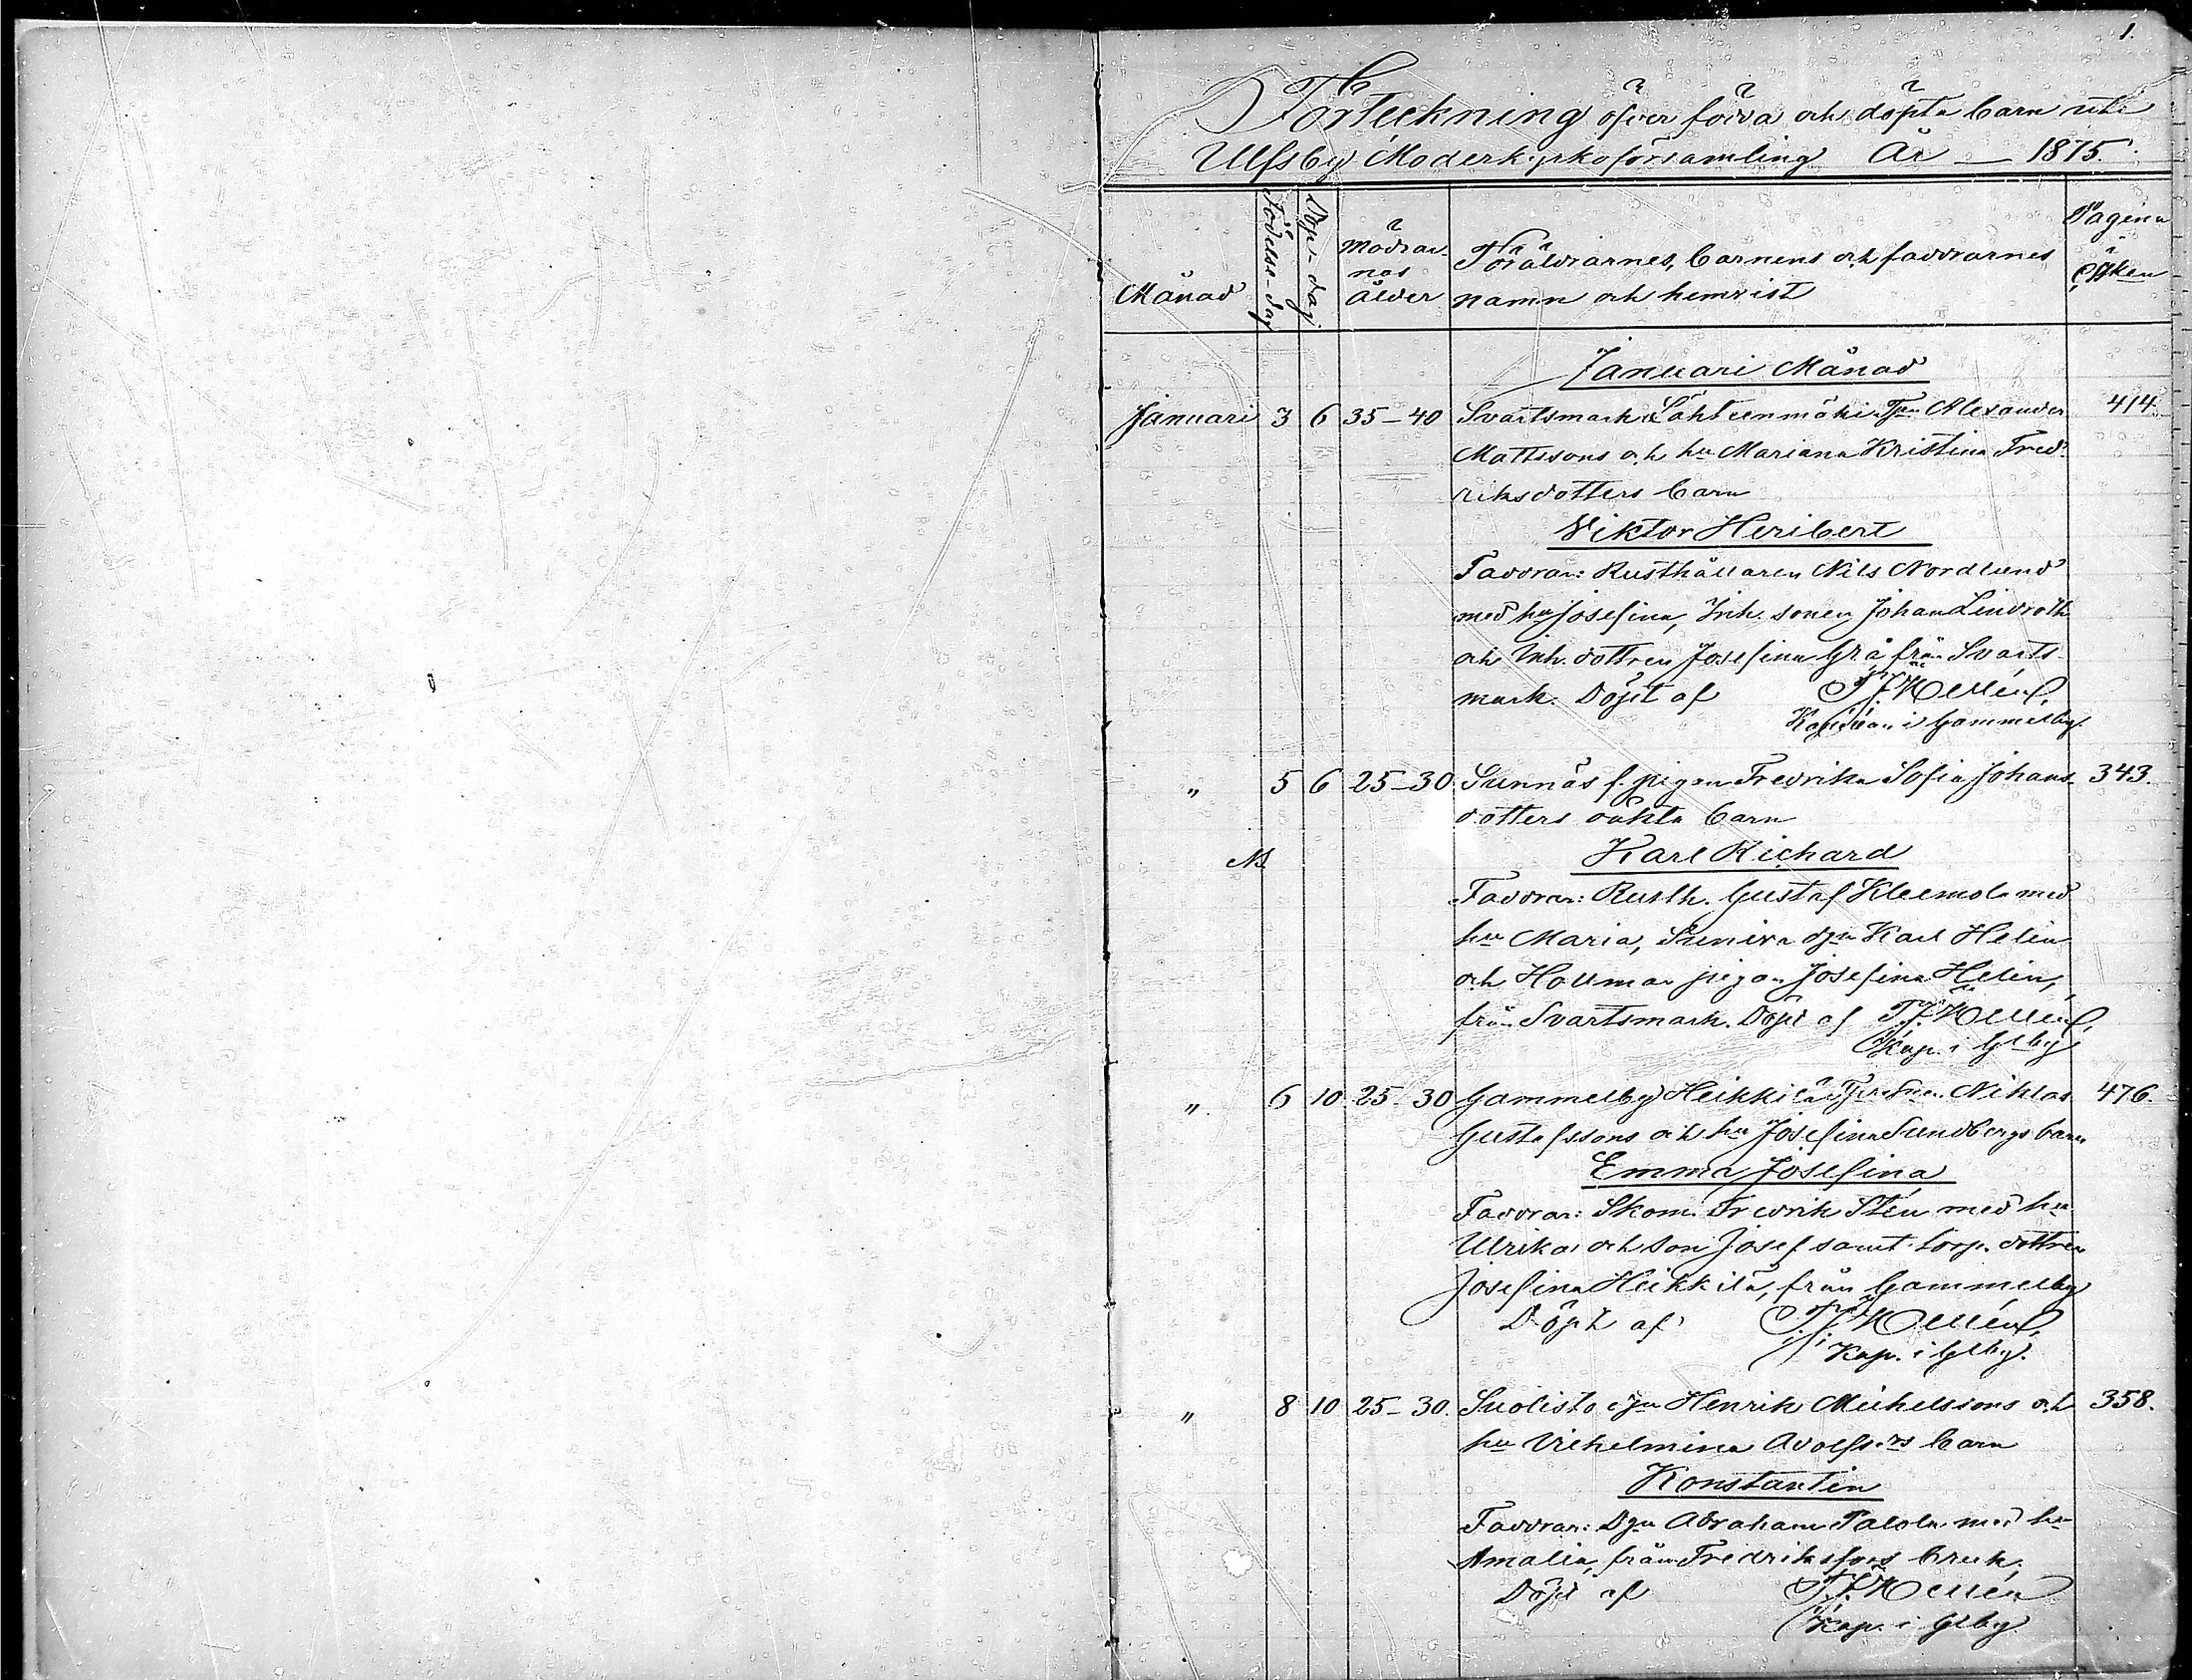 1.
Förteckning öfver födda och döpta barn uti
Ulfsby Moderkyrkoförsamling År — 1875.
Månad
Födelse-dag
Döpt-dag
Mödrar-
nas
ålder
Föräldrarnes, barnens och faddrarnes
namn och hemvist
Pagina
Januari Månad
Januari 3 6 35–40 Svartsmark Lähteenmäki Alexander 414.
Mattssons och hu Mariana Kristina Fred-
riksdotters barn
Viktor Heribert
Faddrar: Rusthållaren Nils Nordlund
med hu Josefina, Inh. sonen Johan Lindroth
och Inh. dottren Josefina Grå från Svarts-
mark. Döpt af F. J. Hellén,
Kapellan i Gammelby.
" 5 6 25–30 Sunnäs f. pigan Fredrika Sofia Johans- 343.
dotters oäkta barn
N.
Karl Richard
Faddrar: Rusth. Gustaf Kleemola med
hu Maria, Karl Helin
och Hollmar pigan Josefina Helin,
från Svartsmark. Döpt af F. J. Hellén,
Kap. i Glby
" 6 10 25–30 Gammelby Heikkilä Niklas 476.
Gustafssons och hu Josefina Sundbergs barn
Emma Josefina
Faddrar: Skom. Fredrik Stén med hu
Ulrika och son Josef samt torp. dottren
Josefina Heikkilä, från Gammelby
Döpt af F. J. Hellén,
Kap. i Glby.
" 8 10 25–30. Suolisto Henrik Michelssons och 358.
hu Vilhelmina Adolfsdrs barn
Konstantin
Faddrar: Dgn Abraham Palola med hu
Amalia, från Fredriksfors bruk.
Döpt af F. J. Hellén
Kap. i Glby